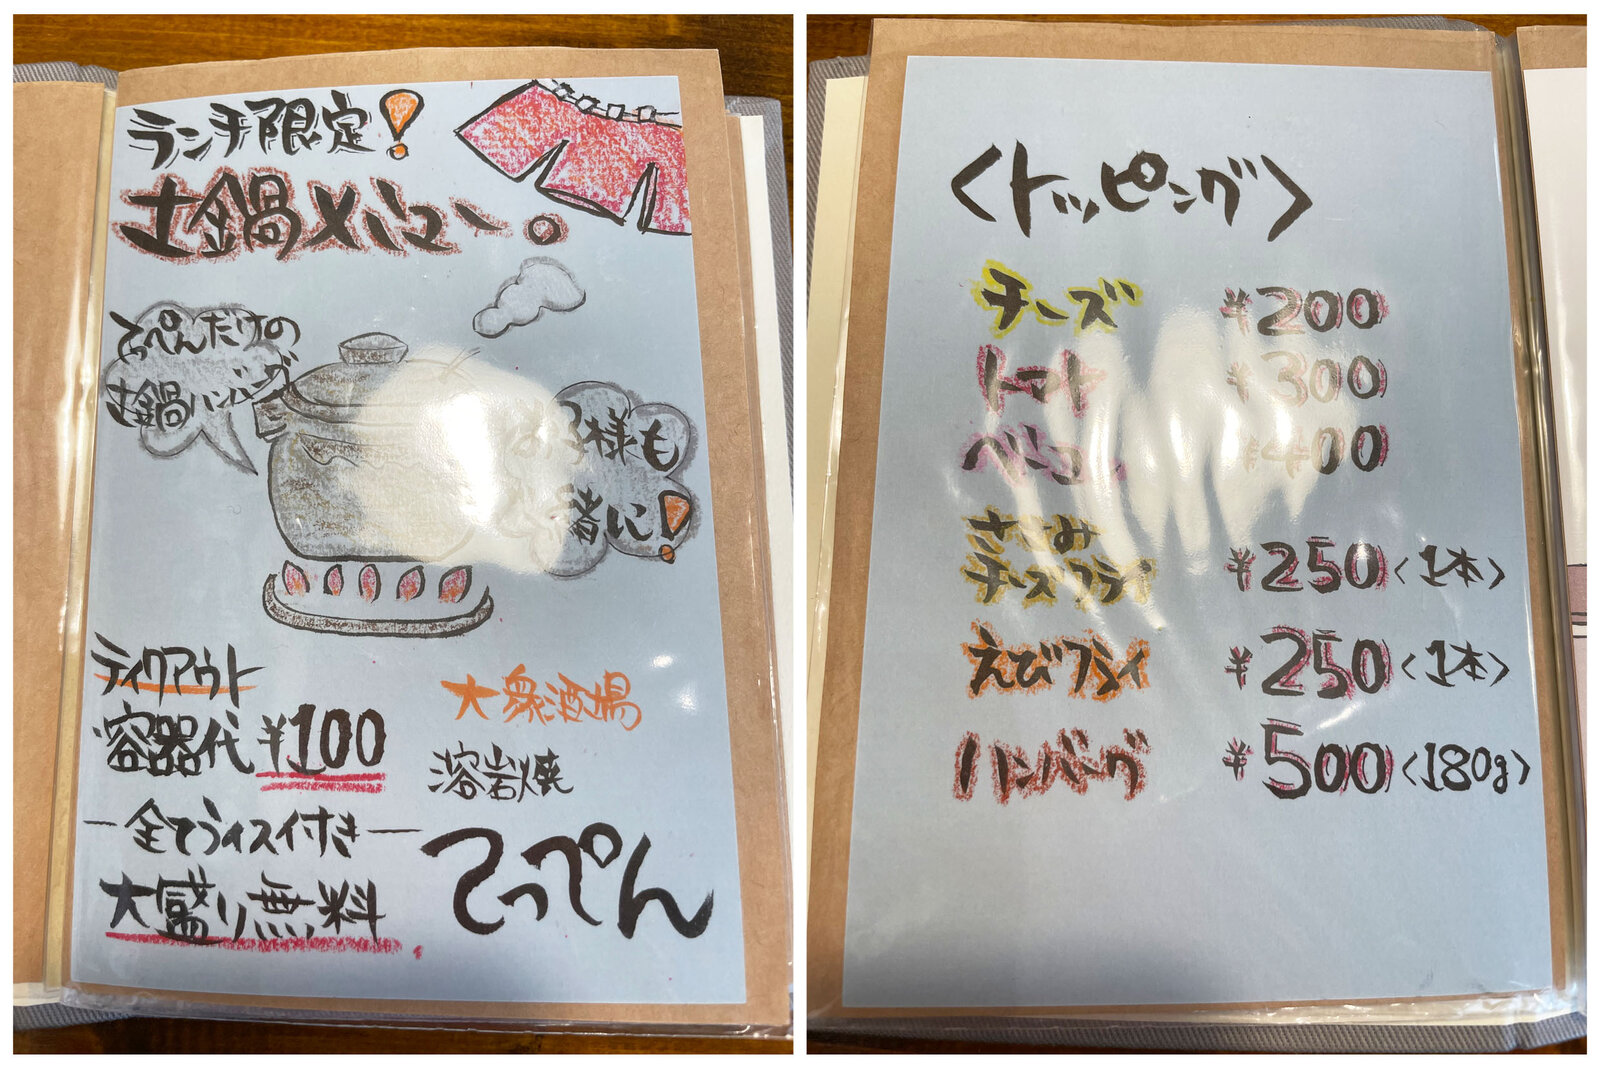 ランチ限定!
土鍋メニュー。
てっぺんだけの
土鍋ハンバーグ
お子様も
一緒に!
テイクアウト
容器代 ¥100
ー全てライス付きー
大盛り無料
大衆酒場
溶岩焼
てっぺん
〈トッピング〉
チーズ ¥200
トマト ¥300
ベーコン ¥400
ささみ
チーズフライ ¥250〈1本〉
えびフライ ¥250〈1本〉
ハンバーグ ¥500〈180g〉